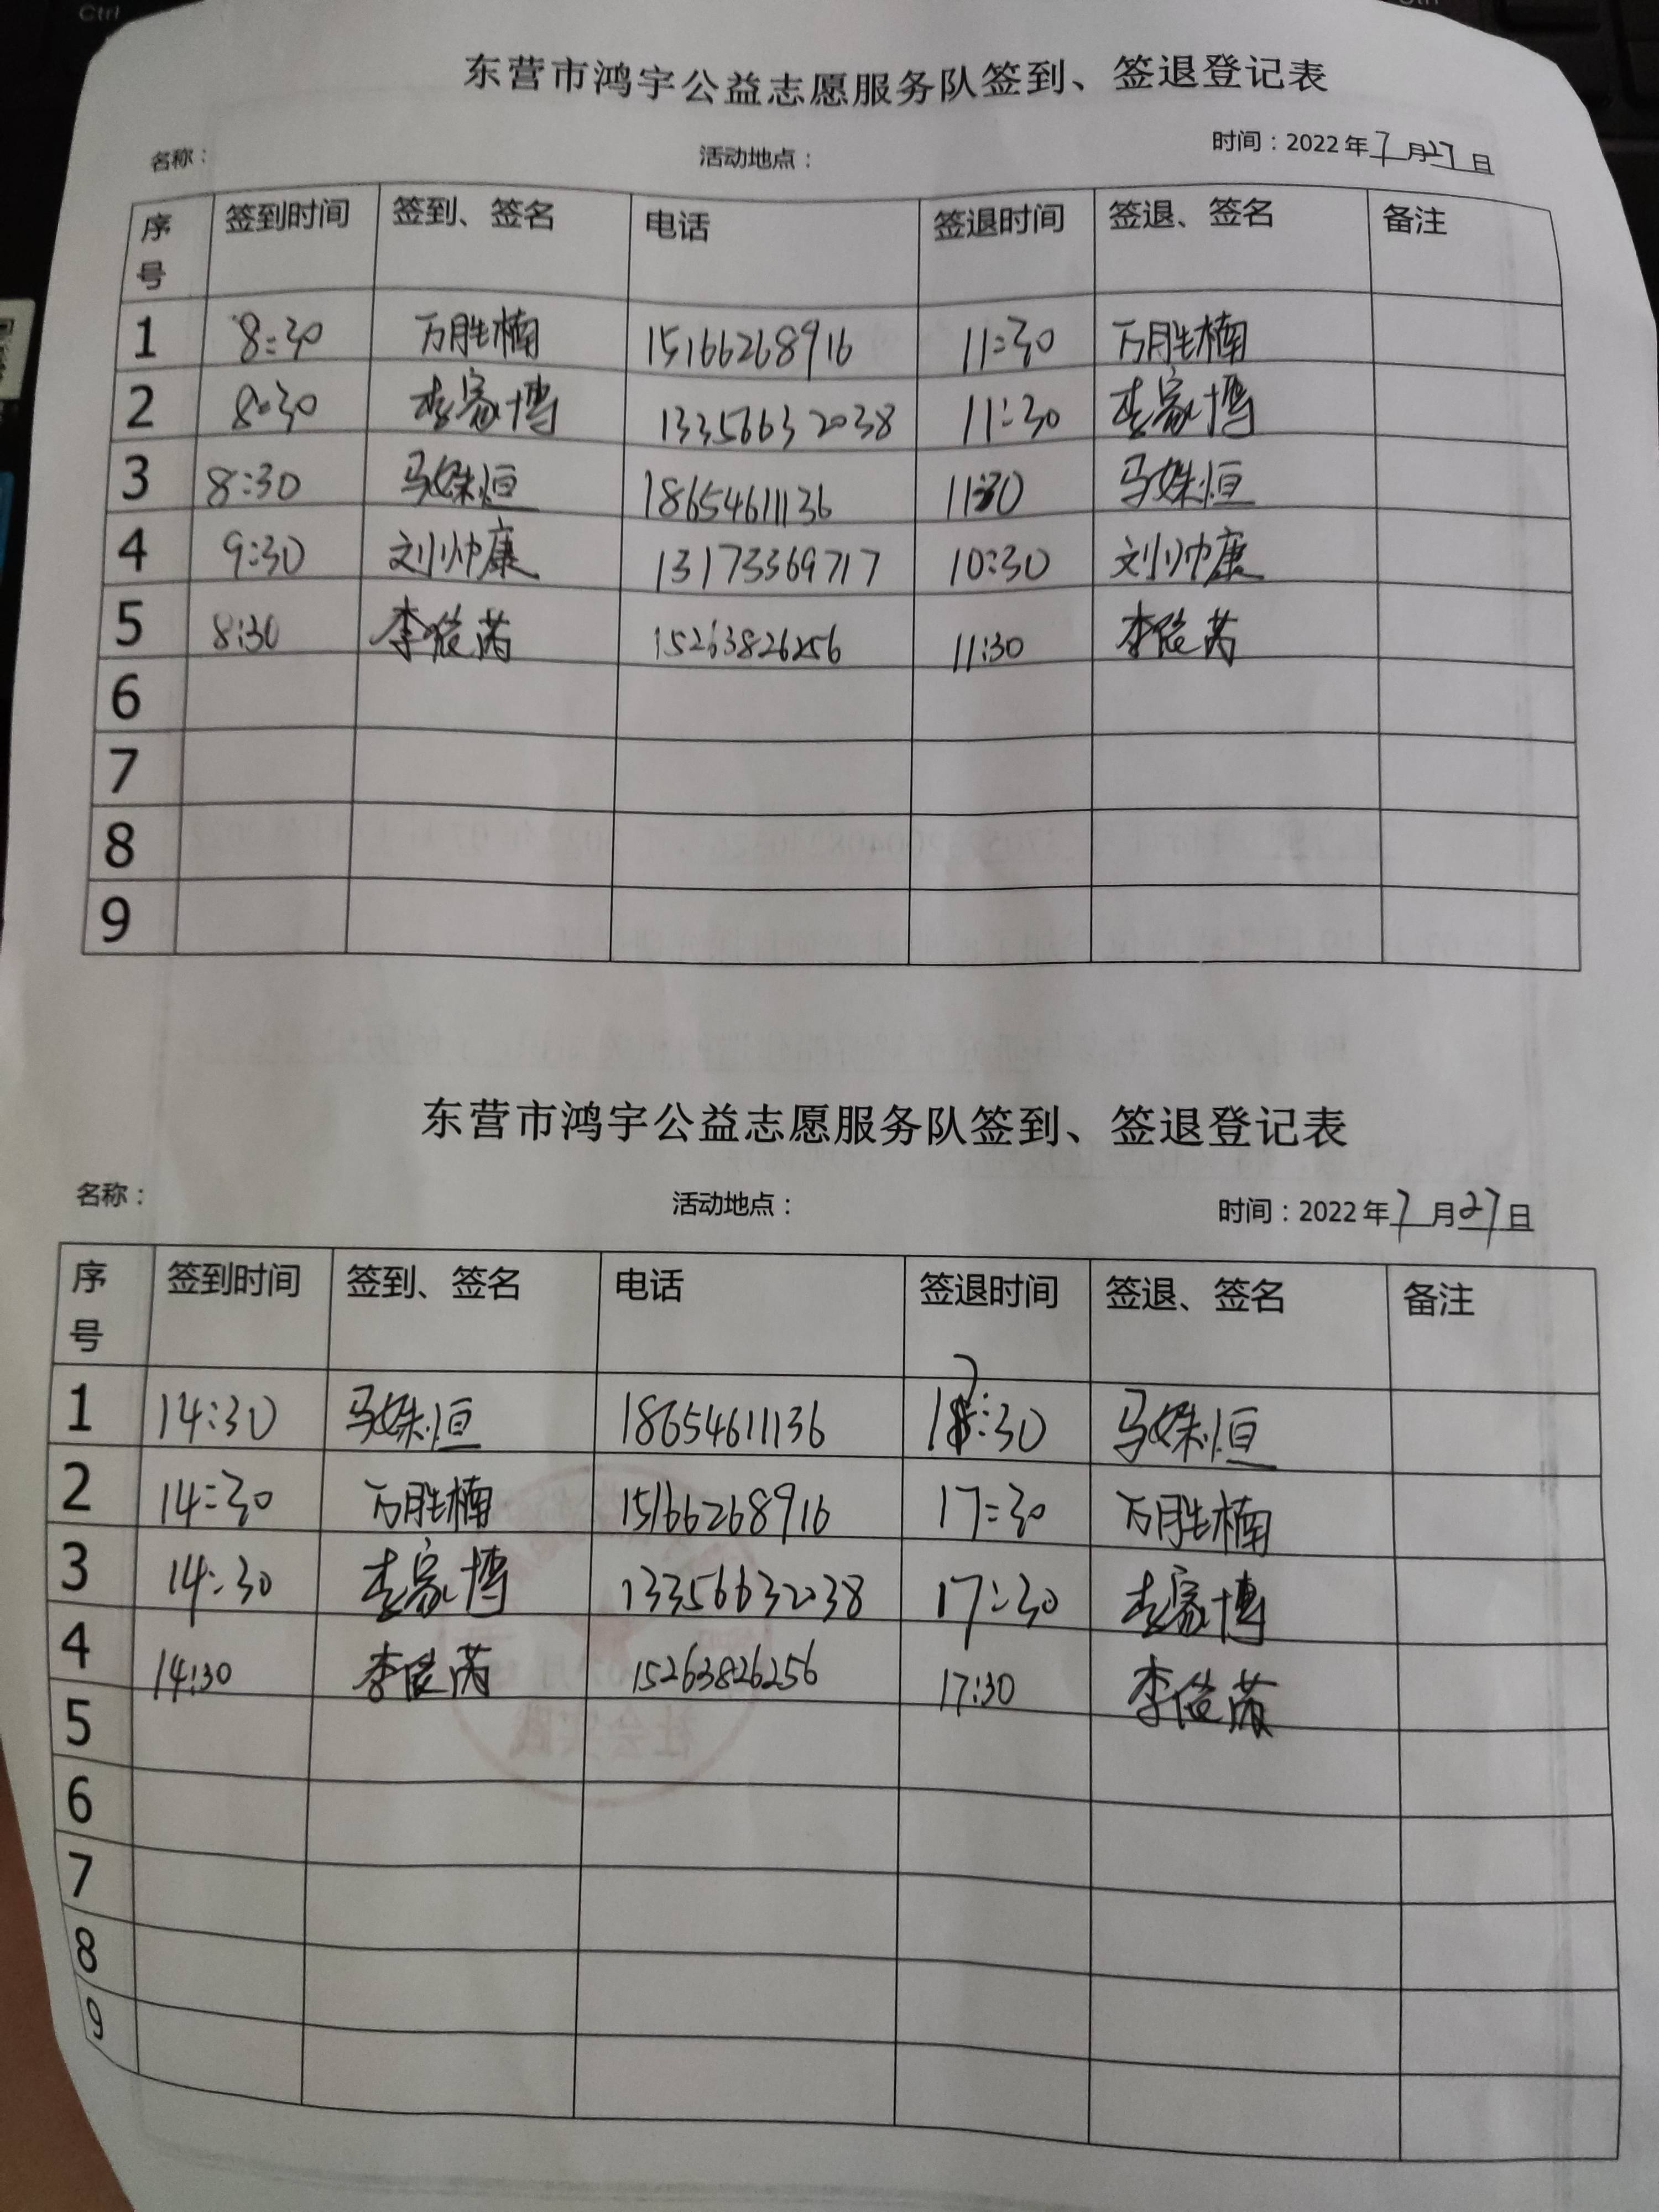 东营市鸿宇公益志愿服务队签到、签退登记表
名称： 活动地点： 时间：2022年7月27日
序号 签到时间 签到、签名 电话 签退时间 签退、签名 备注
1 8:30 万胜楠 15166268916 11:30 万胜楠
2 8:30 李家博 13356632038 11:30 李家博
3 8:30 马姝恒 18654611136 11:30 马姝恒
4 9:30 刘帅康 13173369717 10:30 刘帅康
5 8:30 李俊芮 15263826256 11:30 李俊芮
6
7
8
9
东营市鸿宇公益志愿服务队签到、签退登记表
名称： 活动地点： 时间：2022年7月27日
序号 签到时间 签到、签名 电话 签退时间 签退、签名 备注
1 14:30 马姝恒 18654611136 17:30 马姝恒
2 14:30 万胜楠 15166268916 17:30 万胜楠
3 14:30 李家博 13356632038 17:30 李家博
4 14:30 李俊芮 15263826256 17:30 李俊芮
5
社会实践
6
7
8
9